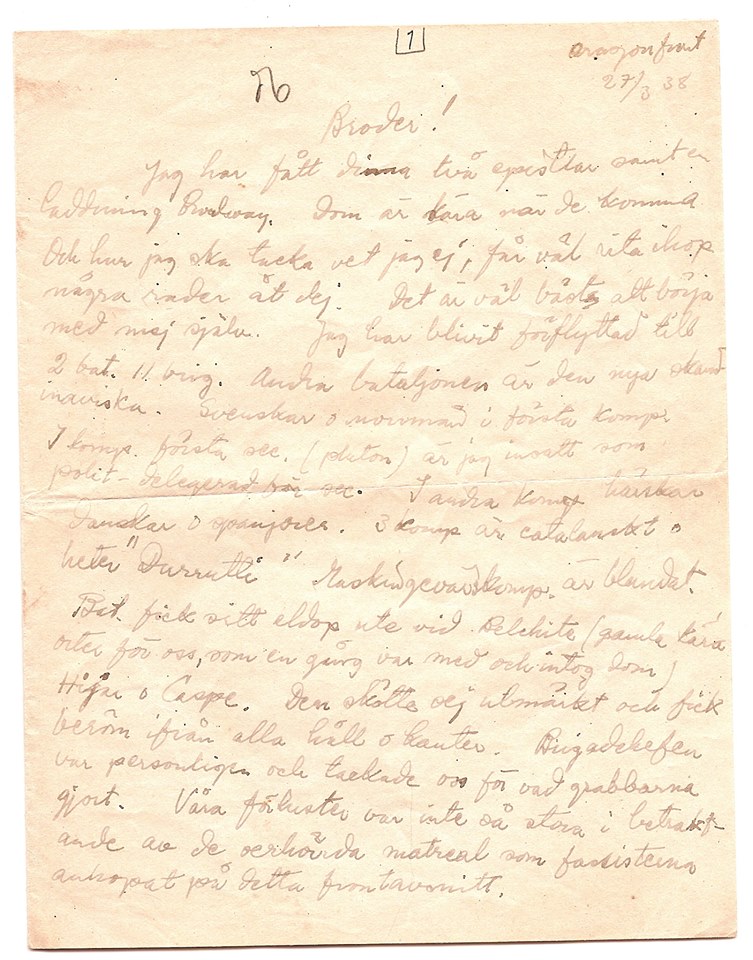 1
Aragonfront
27/3 38
Broder!
Jag har fått dinna två epistlar samt en
laddning Brodway. Dom är kära när de komma.
Och hur jag ska tacka vet jag ej, får väl rita ihop
några rader åt dej. Det är väl bäst att börja
med mej själv. Jag har blivit förflyttad till
2 bat. 11 brig. Andra bataljonen är den nya skand
inaviska. Svenskar o norrmän i första komp.
I komp. första sec. (pluton) är jag insatt som
polit-delegerad för sec. I andra komp härskar
danskar o spanjorer. 3 komp är catalanskt o
heter "Durrutti" Maskingevärskomp. är blandat.
Bat. fick sitt eldop ute vid Belchite (gamla kära
orter för oss, som en gång var med och intog dom)
Hijar o Caspe. Den skötte sej utmärkt och fick
beröm ifrån alla håll o kanter. Brigadchefen
var personligen och tackade oss för vad grabbarna
gjort. Våra förluster var inte så stora i betrakt-
ande av de oerhörda matreal som fascisterna
anhopat på detta frontavsnitt.